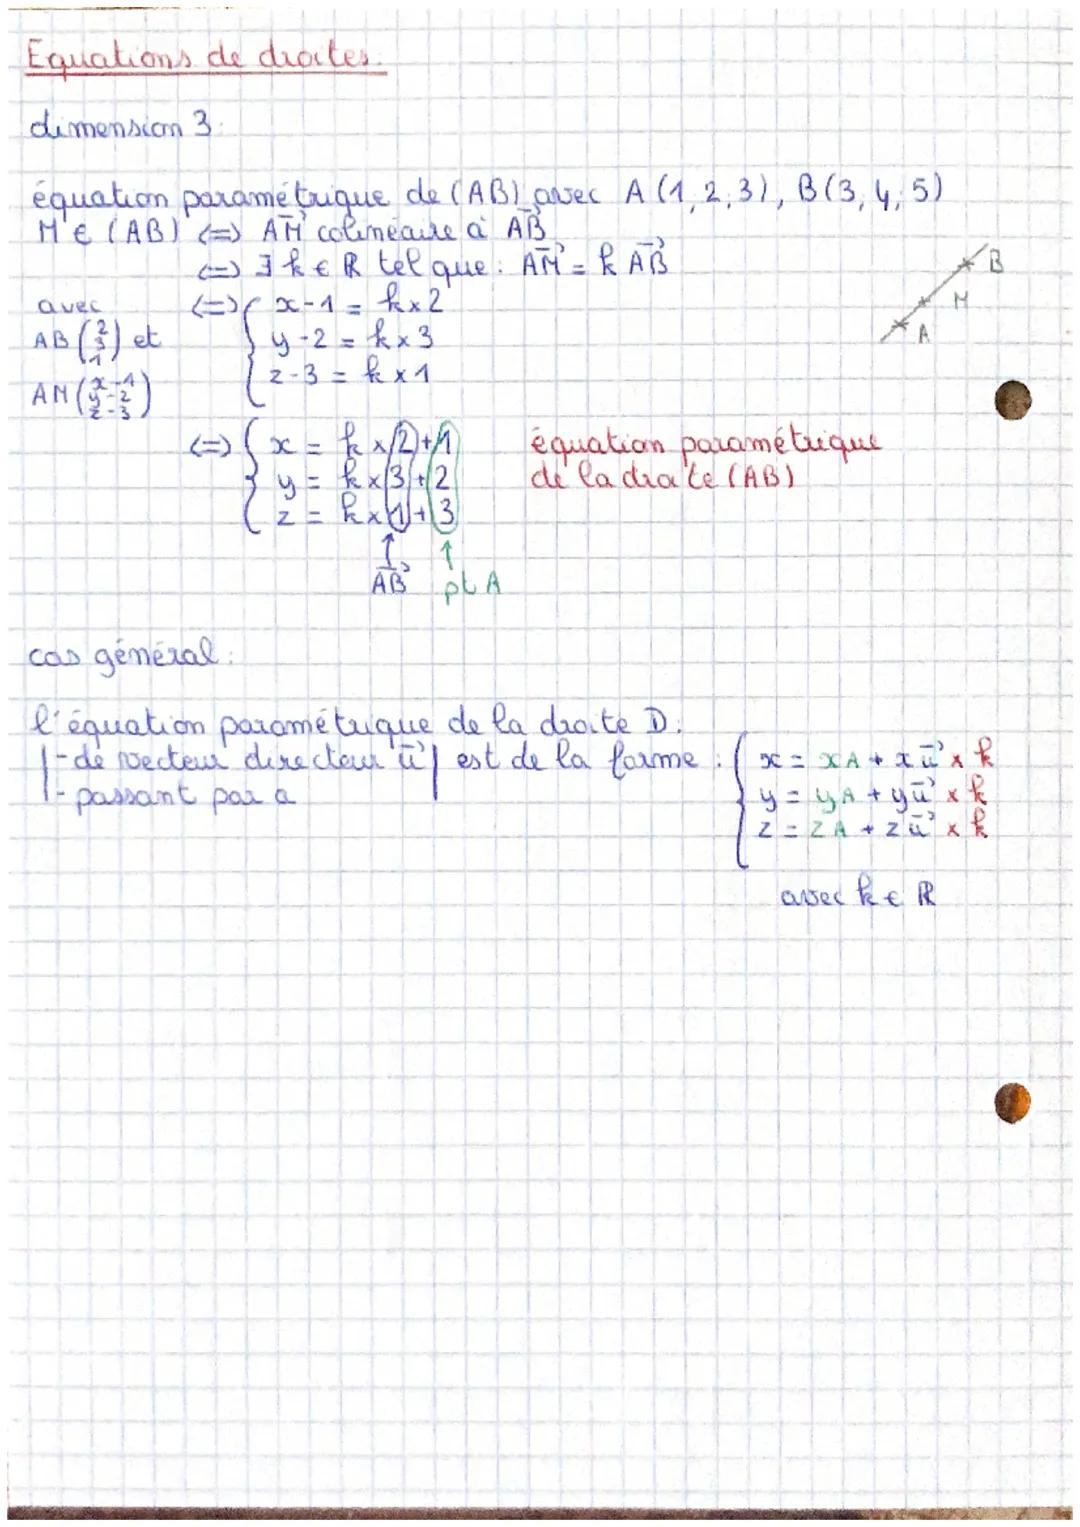 Equations de droites.
dimension 3:
équation paramétrique de (AB) avec A (1, 2, 3), B (3, 4, 5)
M ∈ (AB) <=> AM→ colinéaire à AB→
<=> ∃ k ∈ ℝ tel que : AM→ = k AB→
avec
AB (2 3 1) et
AM (x-1 y-2 z-3)
<=> { x-1 = k×2
y-2 = k×3
z-3 = k×1
<=> { x = k×2+1
y = k×3+2
z = k×1+3
↑ ↑
AB→ pt A
équation paramétrique
de la droite (AB)
B
M
A
cas général :
l'équation paramétrique de la droite D:
|-de vecteur directeur u→| est de la forme : { x = xA + xu→ × k
|- passant par a
y = yA + yu→ × k
z = zA + zu→ × k
avec k ∈ ℝ